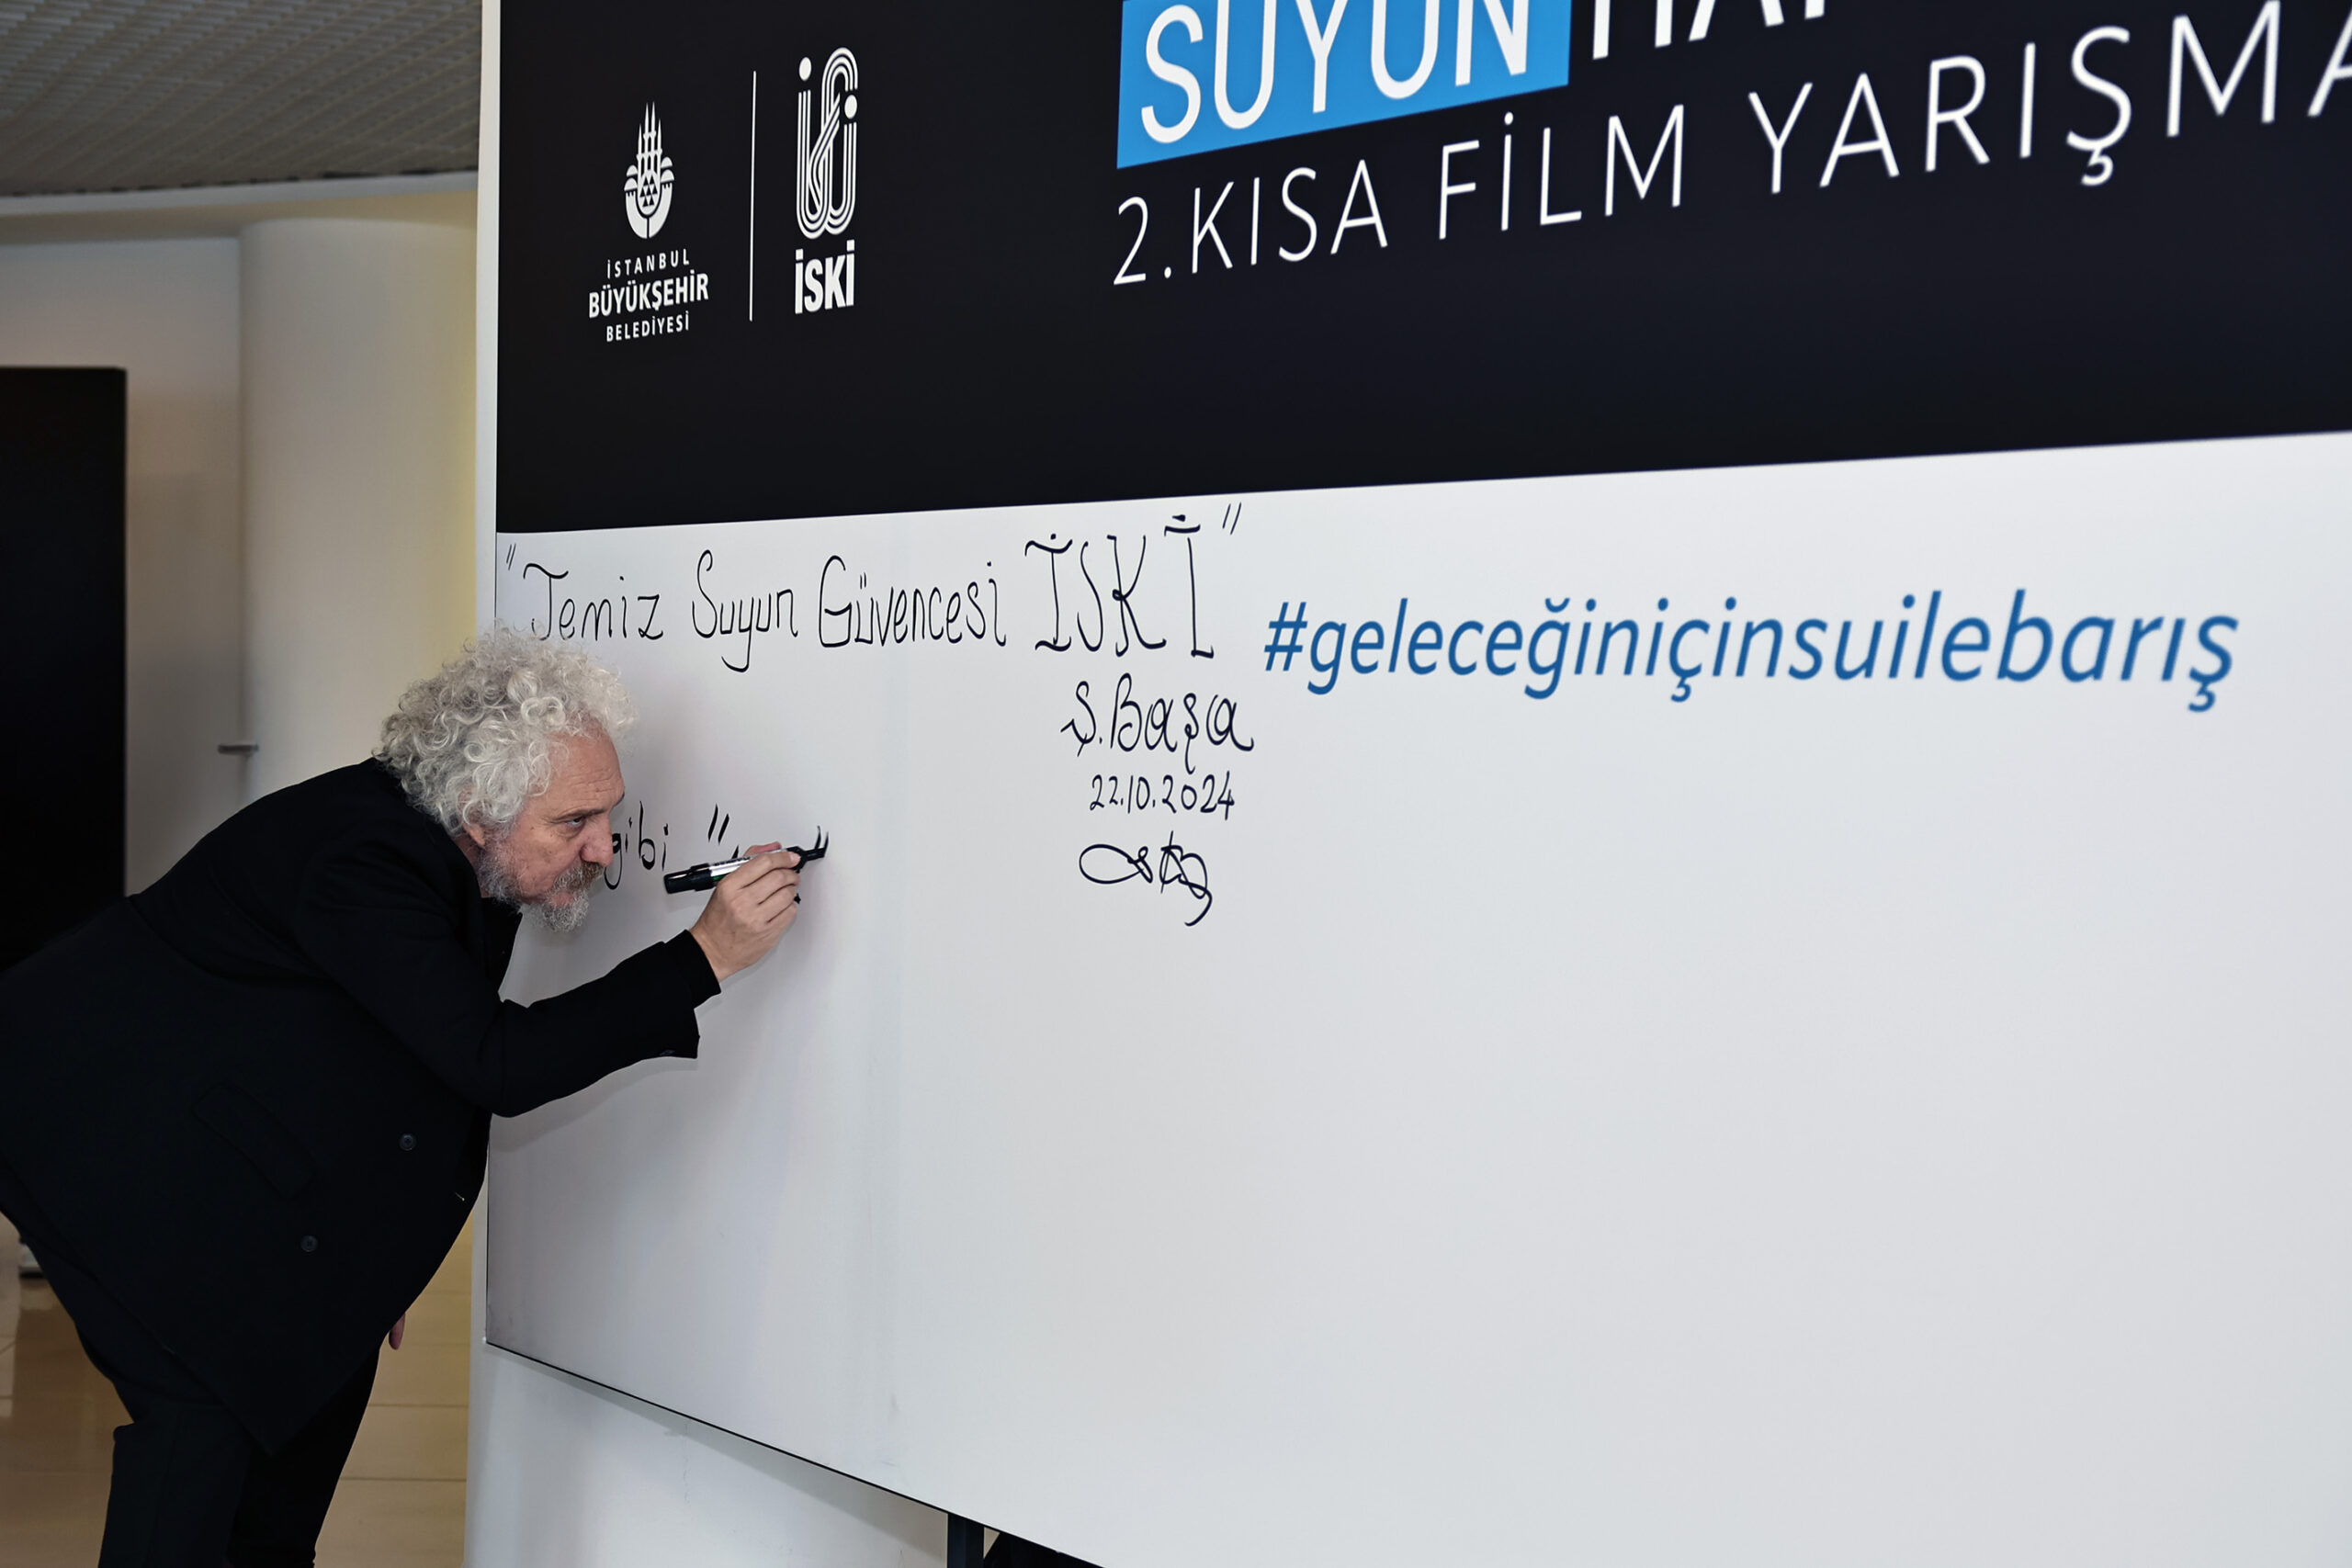 SUYUN
2.KISA FİLM YARIŞMA
İSTANBUL
BÜYÜKŞEHİR
BELEDİYESİ
İSKİ
"Temiz Suyun Güvencesi İSKİ"
#geleceğiniçinsuilebarış
Ş.Başa
22.10.2024
gibi "